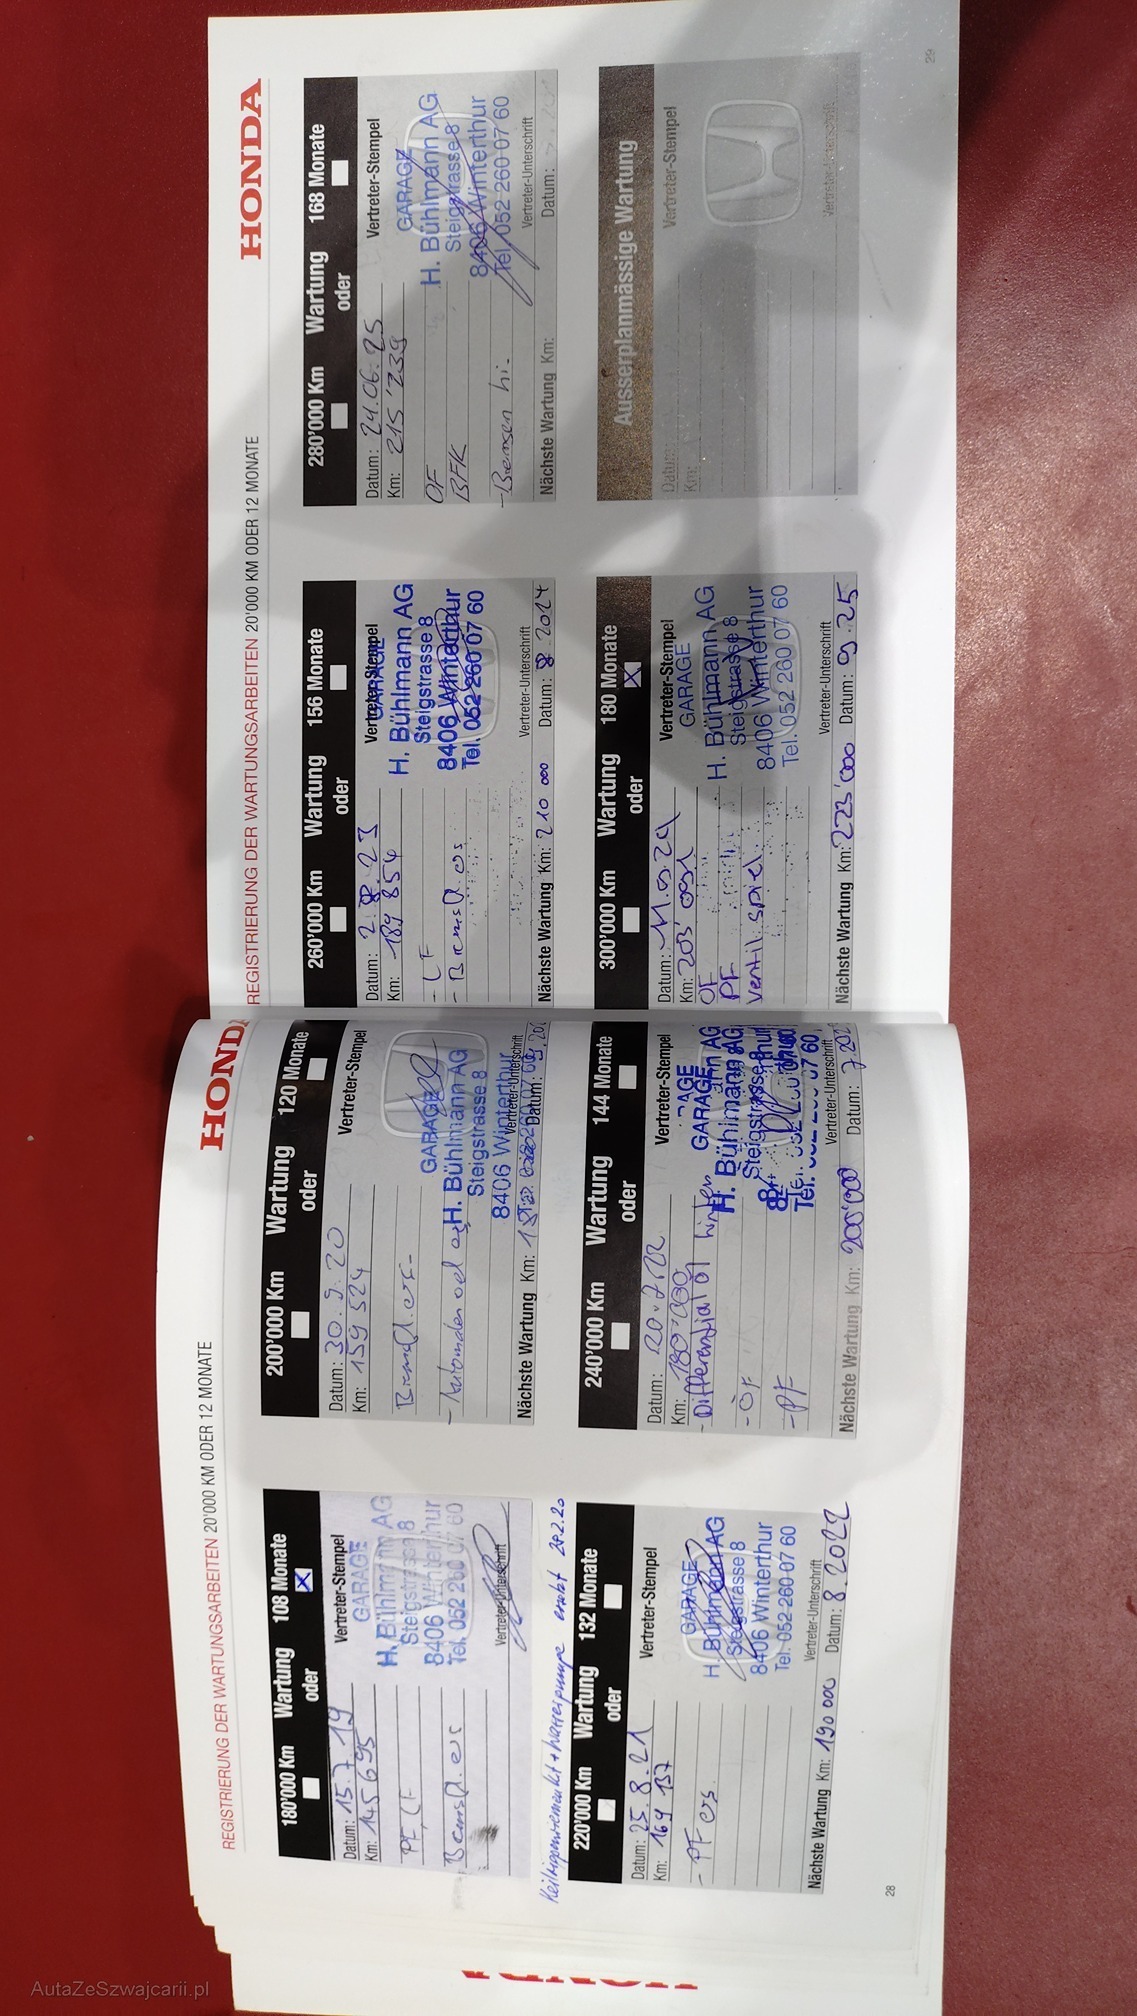 HONDA
REGISTRIERUNG DER WARTUNGSARBEITEN 20'000 KM ODER 12 MONATE
180'000 Km Wartung 108 Monate
oder
Datum: 15.7.19
Km: 145 695
Vertreter-Stempel
GARAGE
H. Bühlmann AG
Steigstrasse 8
8406 Winterthur
Tel. 052 260 07 60
PF, LF
Bremsfl. ers
Vertreter-Unterschrift
ersetzt 28.2.20
200'000 Km Wartung 120 Monate
oder
Datum: 30.9.20
Km: 159 524
Vertreter-Stempel
GARAGE
H. Bühlmann AG
Steigstrasse 8
8406 Winterthur
Bremsfl. ers.
Vertreter-Unterschrift
Nächste Wartung Km:
Datum:
220'000 Km Wartung 132 Monate
oder
Datum: 25.8.21
Km: 169 137
Vertreter-Stempel
GARAGE
H. Bühlmann AG
Steigstrasse 8
8406 Winterthur
Tel. 052 260 07 60
- PF ers.
Vertreter-Unterschrift
Nächste Wartung Km: 190 000 Datum: 8.2022
240'000 Km Wartung 144 Monate
oder
Datum: 20.7.22
Km: 180'000
Vertreter-Stempel
GARAGE
H. Bühlmann AG
Steigstrasse 8
- Differential öl hinten
- ÖF
- PF
Vertreter-Unterschrift
Nächste Wartung Km: 200'000 Datum:
28
HONDA
REGISTRIERUNG DER WARTUNGSARBEITEN 20'000 KM ODER 12 MONATE
260'000 Km Wartung 156 Monate
oder
Datum: 2.8.23
Km: 189 854
Vertreter-Stempel
GARAGE
H. Bühlmann AG
Steigstrasse 8
8406 Winterthur
Tel. 052 260 07 60
- LF
- Bremsfl. ers
Vertreter-Unterschrift
Nächste Wartung Km: 210 000 Datum: 8.2024
280'000 Km Wartung 168 Monate
oder
Datum: 24.06.25
Km: 215'239
Vertreter-Stempel
GARAGE
H. Bühlmann AG
Steigstrasse 8
8406 Winterthur
Tel. 052 260 07 60
OF
BFK
- Bremsen hi.
Vertreter-Unterschrift
Nächste Wartung Km: Datum:
300'000 Km Wartung 180 Monate
oder
Datum: 11.09.24
Km: 203'
Vertreter-Stempel
GARAGE
H. Bühlmann AG
Steigstrasse 8
8406 Winterthur
Tel. 052 260 07 60
OF
PF
Ventil spiel
Vertreter-Unterschrift
Nächste Wartung Km: 223'000 Datum: 09.25
Ausserplanmässige Wartung
Datum:
Km:
Vertreter-Stempel
Vertreter-Unterschrift
29
AutaZeSzwajcarii.pl